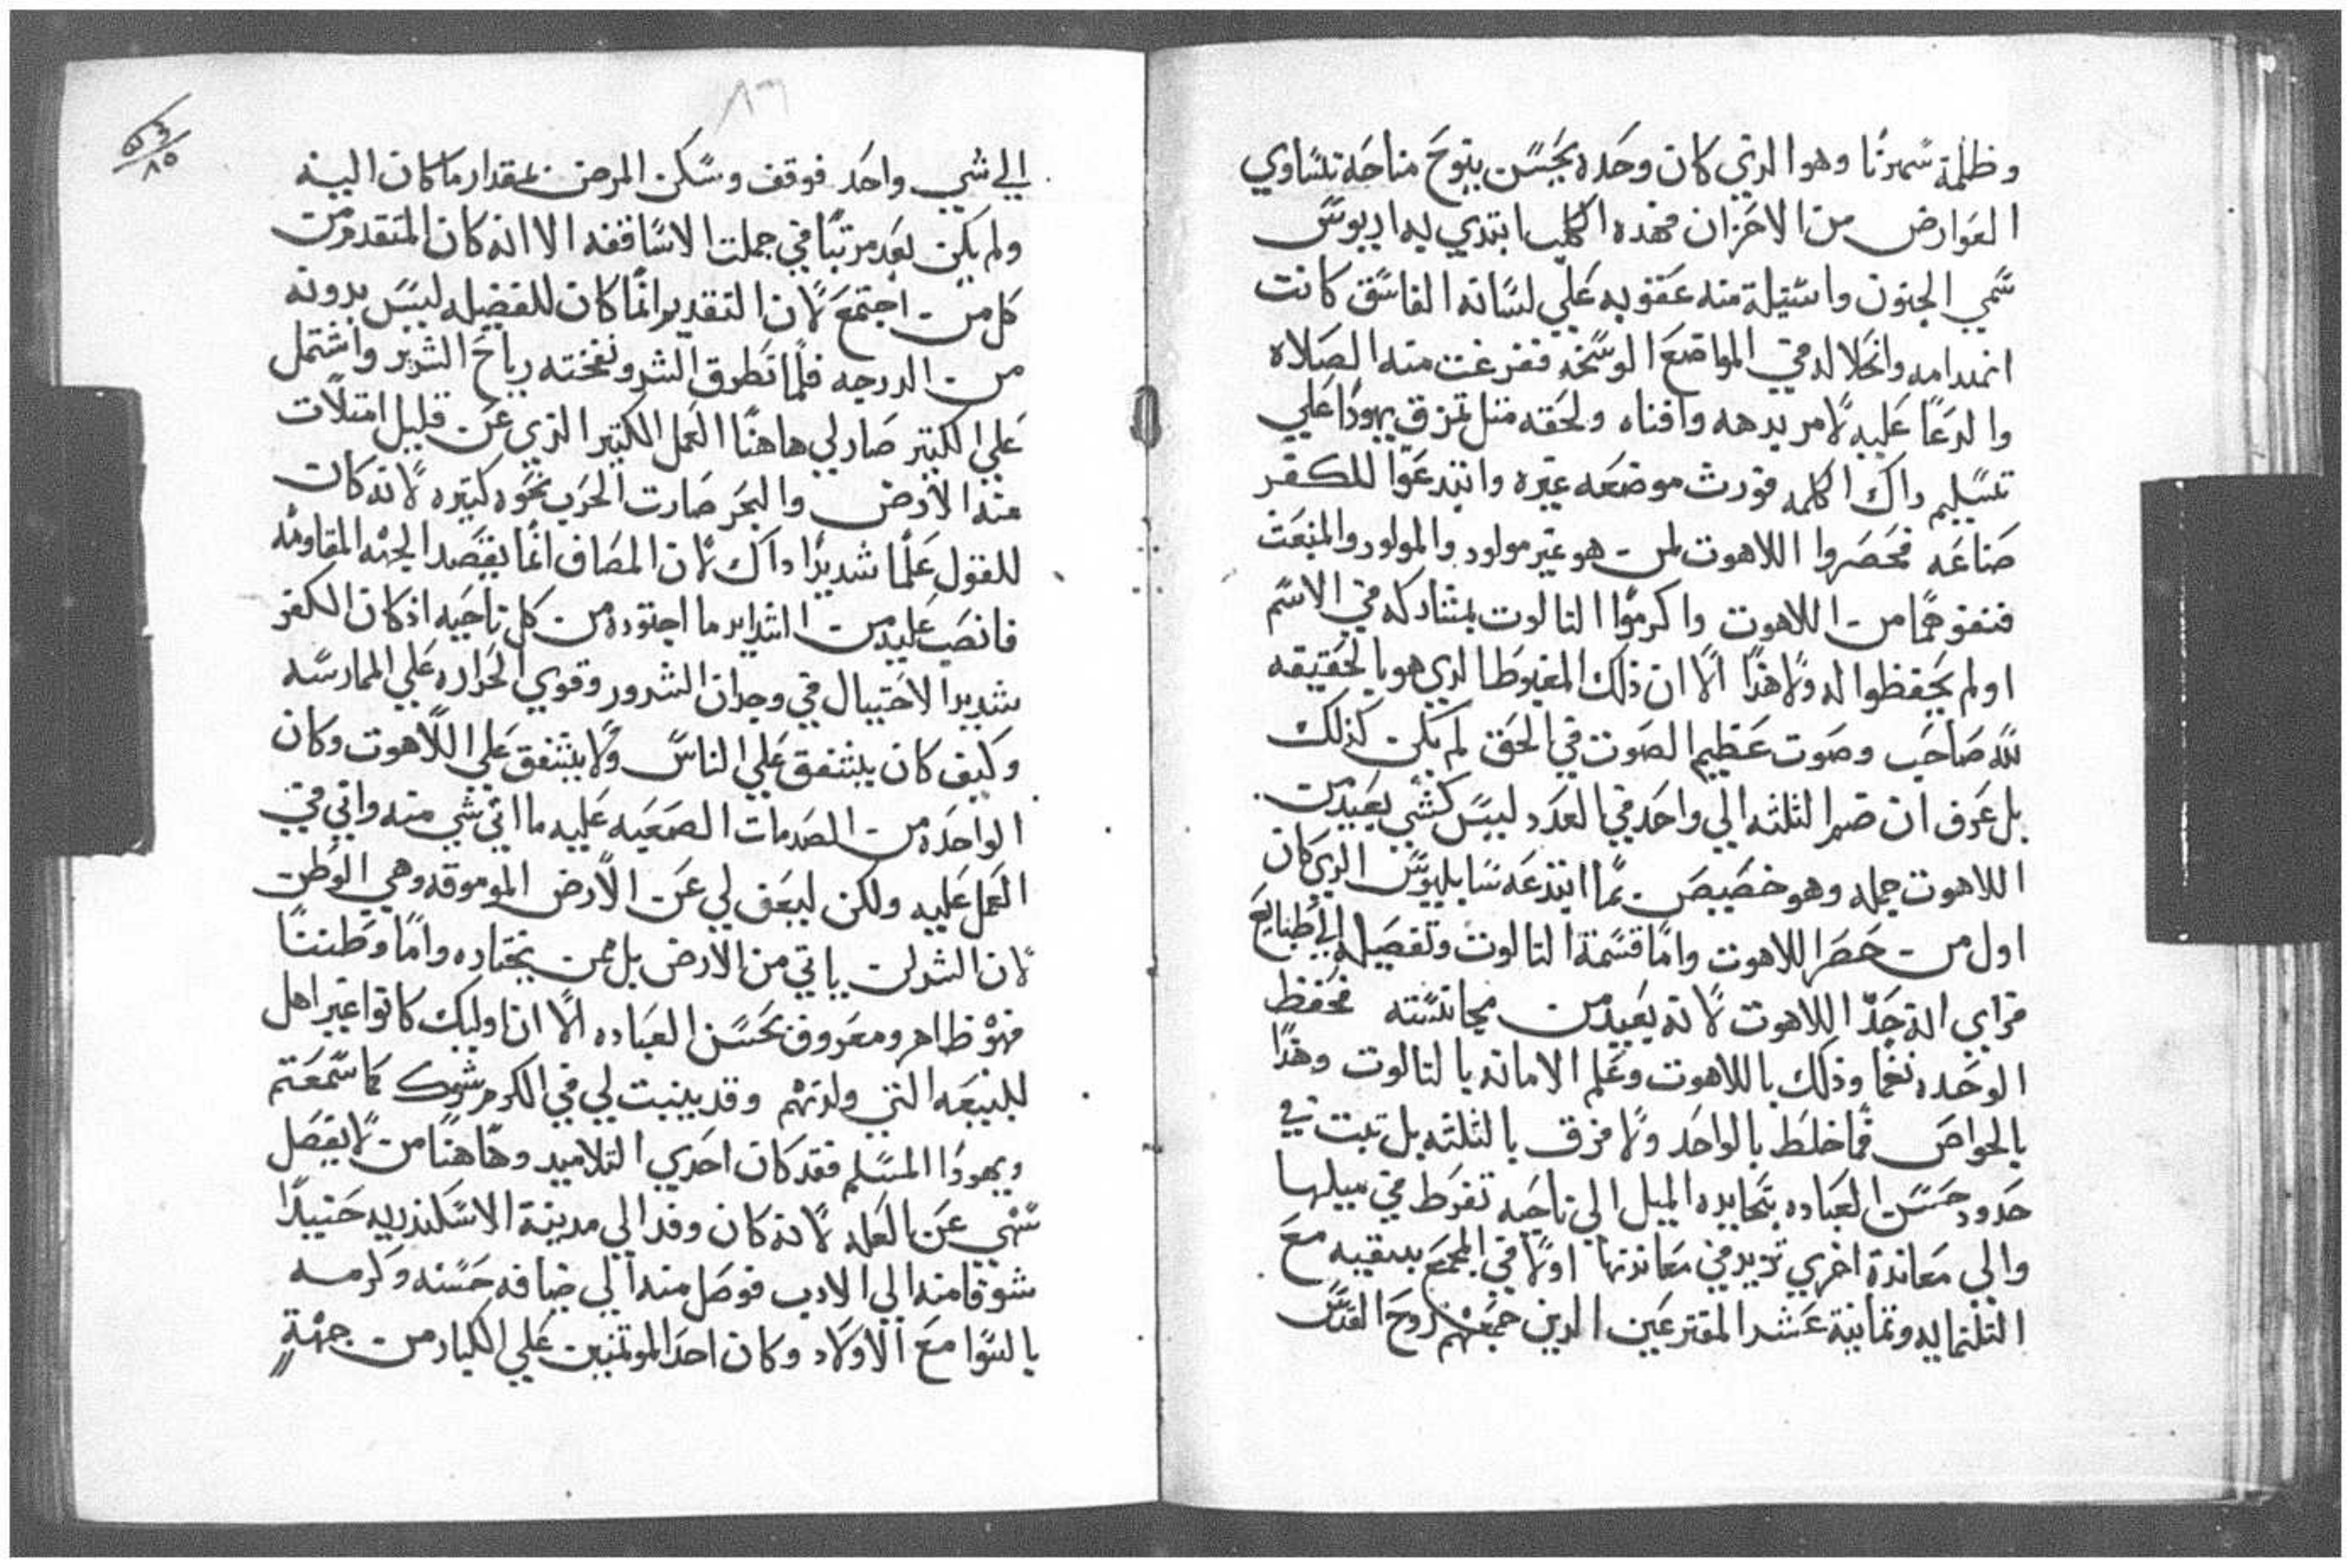 وظلمة سمرنا وهوا الدي كان وحده يحسن بنوح مناحه تساوي
العوارض من الاحزان فهده الكلب ابتدي به اريوس
سمي الجنون واستيله منه عقوبه علي لسانه الفاسق كانت
انهدامه وانحلاله في المواضع الوسخه ففرغت منه الصلاه
والدعا عليه لامر يدهه وافناه ولحقه متل تمزق يهودا علي
تسليم داك الكلمه فورث موضعه غيره وابتدعوا للكفر
صناعه فحصروا اللاهوت لمن هو غير مولود والمولود والمنبعث
فنفوهما من اللاهوت واكرموا التالوت بمشاركه في الاسم
اولم يحفظوا له ولا هذا الا ان ذلك المغبوط الدي هو بالحقيقه
لله صاحب وصوت عظيم الصوت في الحق لم يكن كذلك
بل عرف ان ضم الثلثه الي واحد في العدد ليس كشي بعيد من
اللاهوت جمله وهو خصيص بما ابتدعه سابليوس الدي كان
اول من حصر اللاهوت واما قسمة التالوت وتفصيله الي طبايع
فراي انه حد اللاهوت لانه بعيد من مجانسته فحفظ
الوحده نعما وذلك باللاهوت وعلم الامانه بالتالوت وهذا
بالخواص فما خلط بالواحد ولا فرق بالثلثه بل تبت في
حدود حسن العباده بتحايده الميل الي ناحيه تفرط في ميلها
والي معاندة اخري تزيد في معاندتها اولا في المجمع بنيقيه مع
التلتمايه وتمانية عشر المقترعين الدين جمعهم روح القدس

الي شي واحد فوقف وسكن المرض بمقدار ما كان اليه
ولم يكن بعد مرتبا في جملت الاساقفه الا انه كان المتقدم من
كل من اجتمع لان التقديم انما كان للفضيله ليس بدونه
من الدرجه فلما تطرق الشر ونفخته رياح الشرير واشتمل
علي الكتير صار لي هاهنا العمل الكتير الذي عن قليل امتلات
منه الارض والبحر صارت الحرب نحوه كتيره لانه كان
للقول علما شديدا داك لان المصاف انما يقصد الجهه المقاومه
فانصب عليه من الشدايد ما احتوده من كل ناحيه اذ كان الكفر
شديد الاحتيال في وجدان الشرور وقوي الحراره علي الممارسه
وكيف كان يشفق علي الناس ولا يشفق علي اللاهوت وكان
الواحده من الصدمات الصعبه عليه ما اتي شي منه واتي في
العمل عليه ولكن ليعف لي عن الارض الموموقه وهي الوطن
لان الشر لن ياتي من الارض بل ممن يختاره واما وطننا
فهو ظاهر ومعروف بحسن العباده الا ان اوليك كانوا غير اهل
للبيعه التي ولدتهم وقد ينبت لي في الكرم شوك كما سمعتم
ويهودا المسلم فقد كان احدي التلاميد وهاهنا من لا يفصل
شهي عن العله لانه كان وفد الي مدينة الاسكندريه حنيدا
شوقا منه الي الادب فوصل منه الي ضيافه حسنه وكرمه
بالسوا مع الاولاد وكان احد الموتمنين علي الكبار من جهة